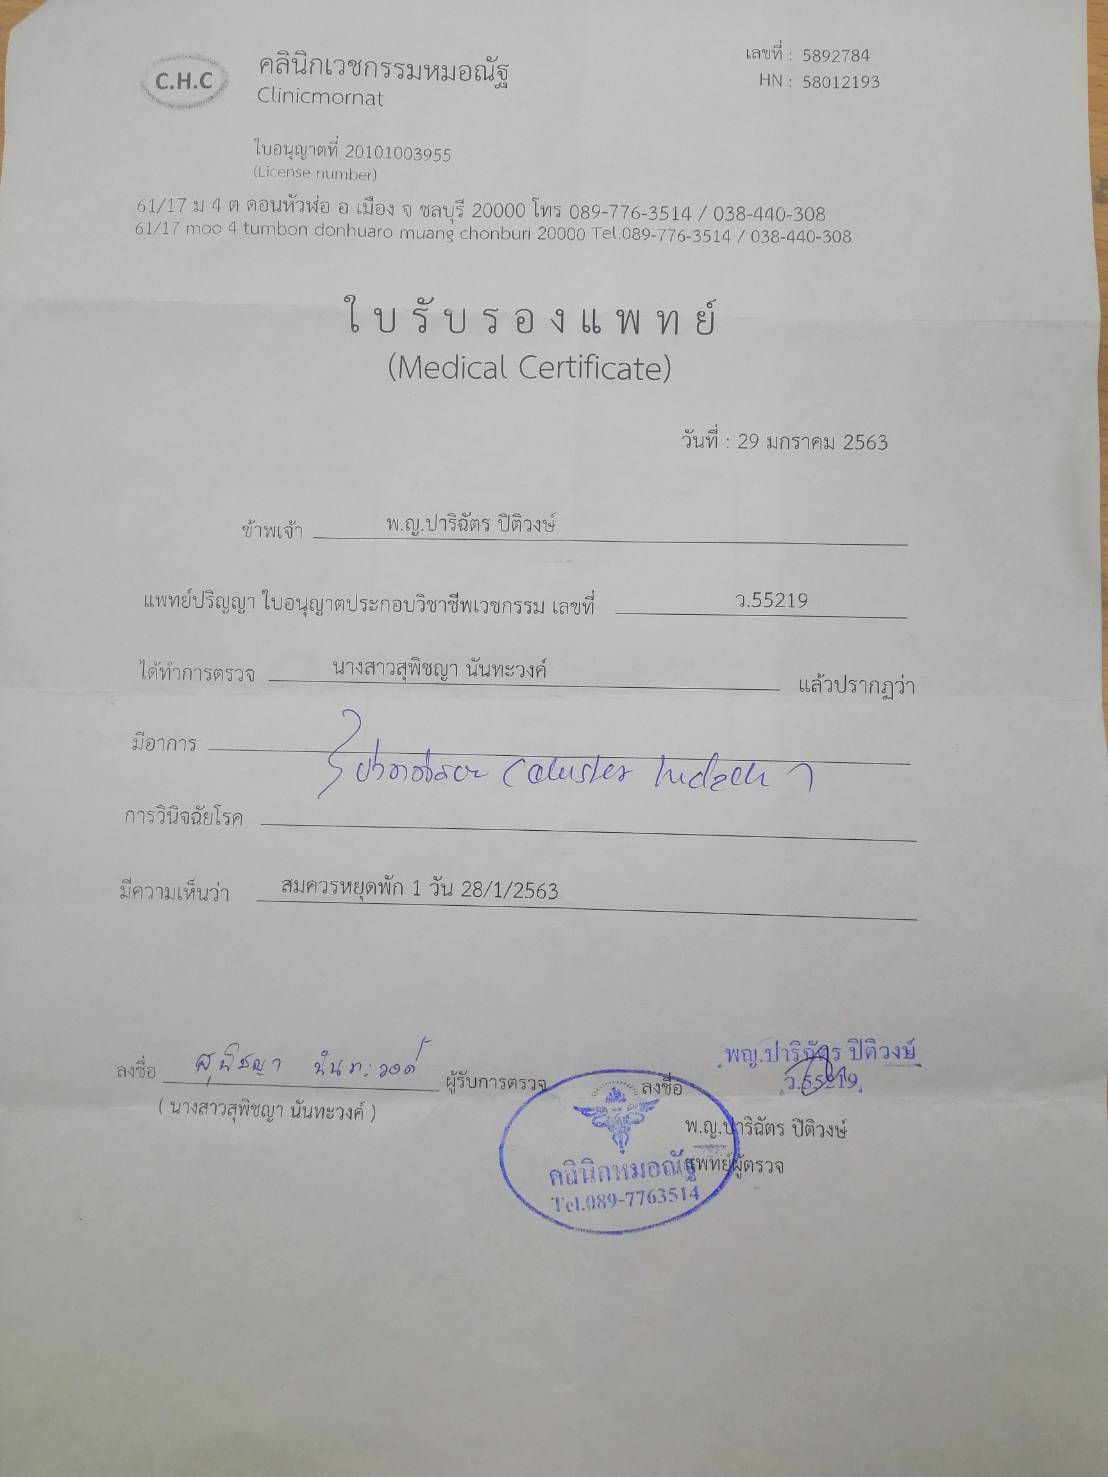 C.H.C
คลินิกเวชกรรมหมอณัฐ
Clinicmornat
เลขที่ : 5892784
HN : 58012193
ใบอนุญาตที่ 20101003955
(License number)
61/17 ม 4 ต ดอนหัวฬ่อ อ เมือง จ ชลบุรี 20000 โทร 089-776-3514 / 038-440-308
61/17 moo 4 tumbon donhuaro muang chonburi 20000 Tel.089-776-3514 / 038-440-308
ใบรับรองแพทย์
(Medical Certificate)
วันที่ : 29 มกราคม 2563
ข้าพเจ้า พ.ญ.ปาริฉัตร ปิติวงษ์
แพทย์ปริญญา ใบอนุญาตประกอบวิชาชีพเวชกรรม เลขที่ ว.55219
ได้ทำการตรวจ นางสาวสุพิชญา นันทะวงค์ แล้วปรากฏว่า
มีอาการ
การวินิจฉัยโรค
มีความเห็นว่า สมควรหยุดพัก 1 วัน 28/1/2563
ลงชื่อ สุพิชญา นันทะวงค์ ผู้รับการตรวจ
(นางสาวสุพิชญา นันทะวงค์)
พญ.ปาริฉัตร ปิติวงษ์
ว.55219
ลงชื่อ
พ.ญ.ปาริฉัตร ปิติวงษ์
แพทย์ผู้ตรวจ
คลินิกหมอณัฐ
Tel.089-7763514